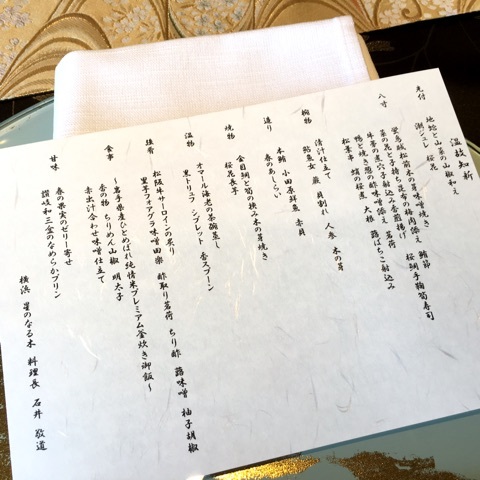 温故知新
先付
地蛤と山菜の山椒和え
潮ジュレ 桜花
八寸
蛍烏賊松前木の芽味噌焼き 鮪節
菜の花と子持ち昆布の梅肉添え 桜鯛手鞠筍寿司
牛蒡の直穴子射込み香煎揚げ
鴨と焼き葱の酢味噌添え 茗荷
松葉串 蛸の桜煮 大根 蕗ばちこ射込み
椀物
清汁仕立て
鮎魚女 蕨 貝割れ 人参 木の芽
造り
本鮪 小田原鮮魚 赤貝
春のあしらい
焼物
金目鯛と筍の挟み木の芽焼き
桜花長芋
温物
オマール海老の茶碗蒸し
黒トリュフ シブレット 香スプーン
強肴
松阪牛サーロインの炙り
里芋フォアグラ味噌田楽 酢取り茗荷 ちり酢 蕗味噌 柚子胡椒
食事
～岩手県産ひとめぼれ純情米プレミアム釜炊き御飯～
香の物 ちりめん山椒 明太子
赤出汁合わせ味噌仕立て
甘味
春の果実のゼリー寄せ
讃岐和三盆のなめらかプリン
横浜 星のなる木 料理長 石井 敬道